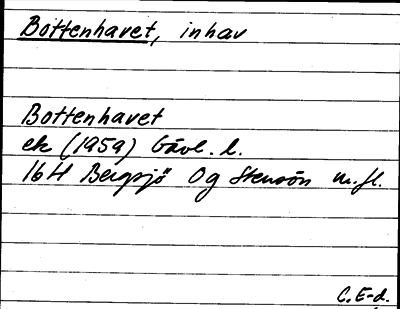 Bottenhavet, inhav
Bottenhavet
ek (1959) Gävl. l.
16H Bergsjö Og Stensön m.fl.
C. E-d.